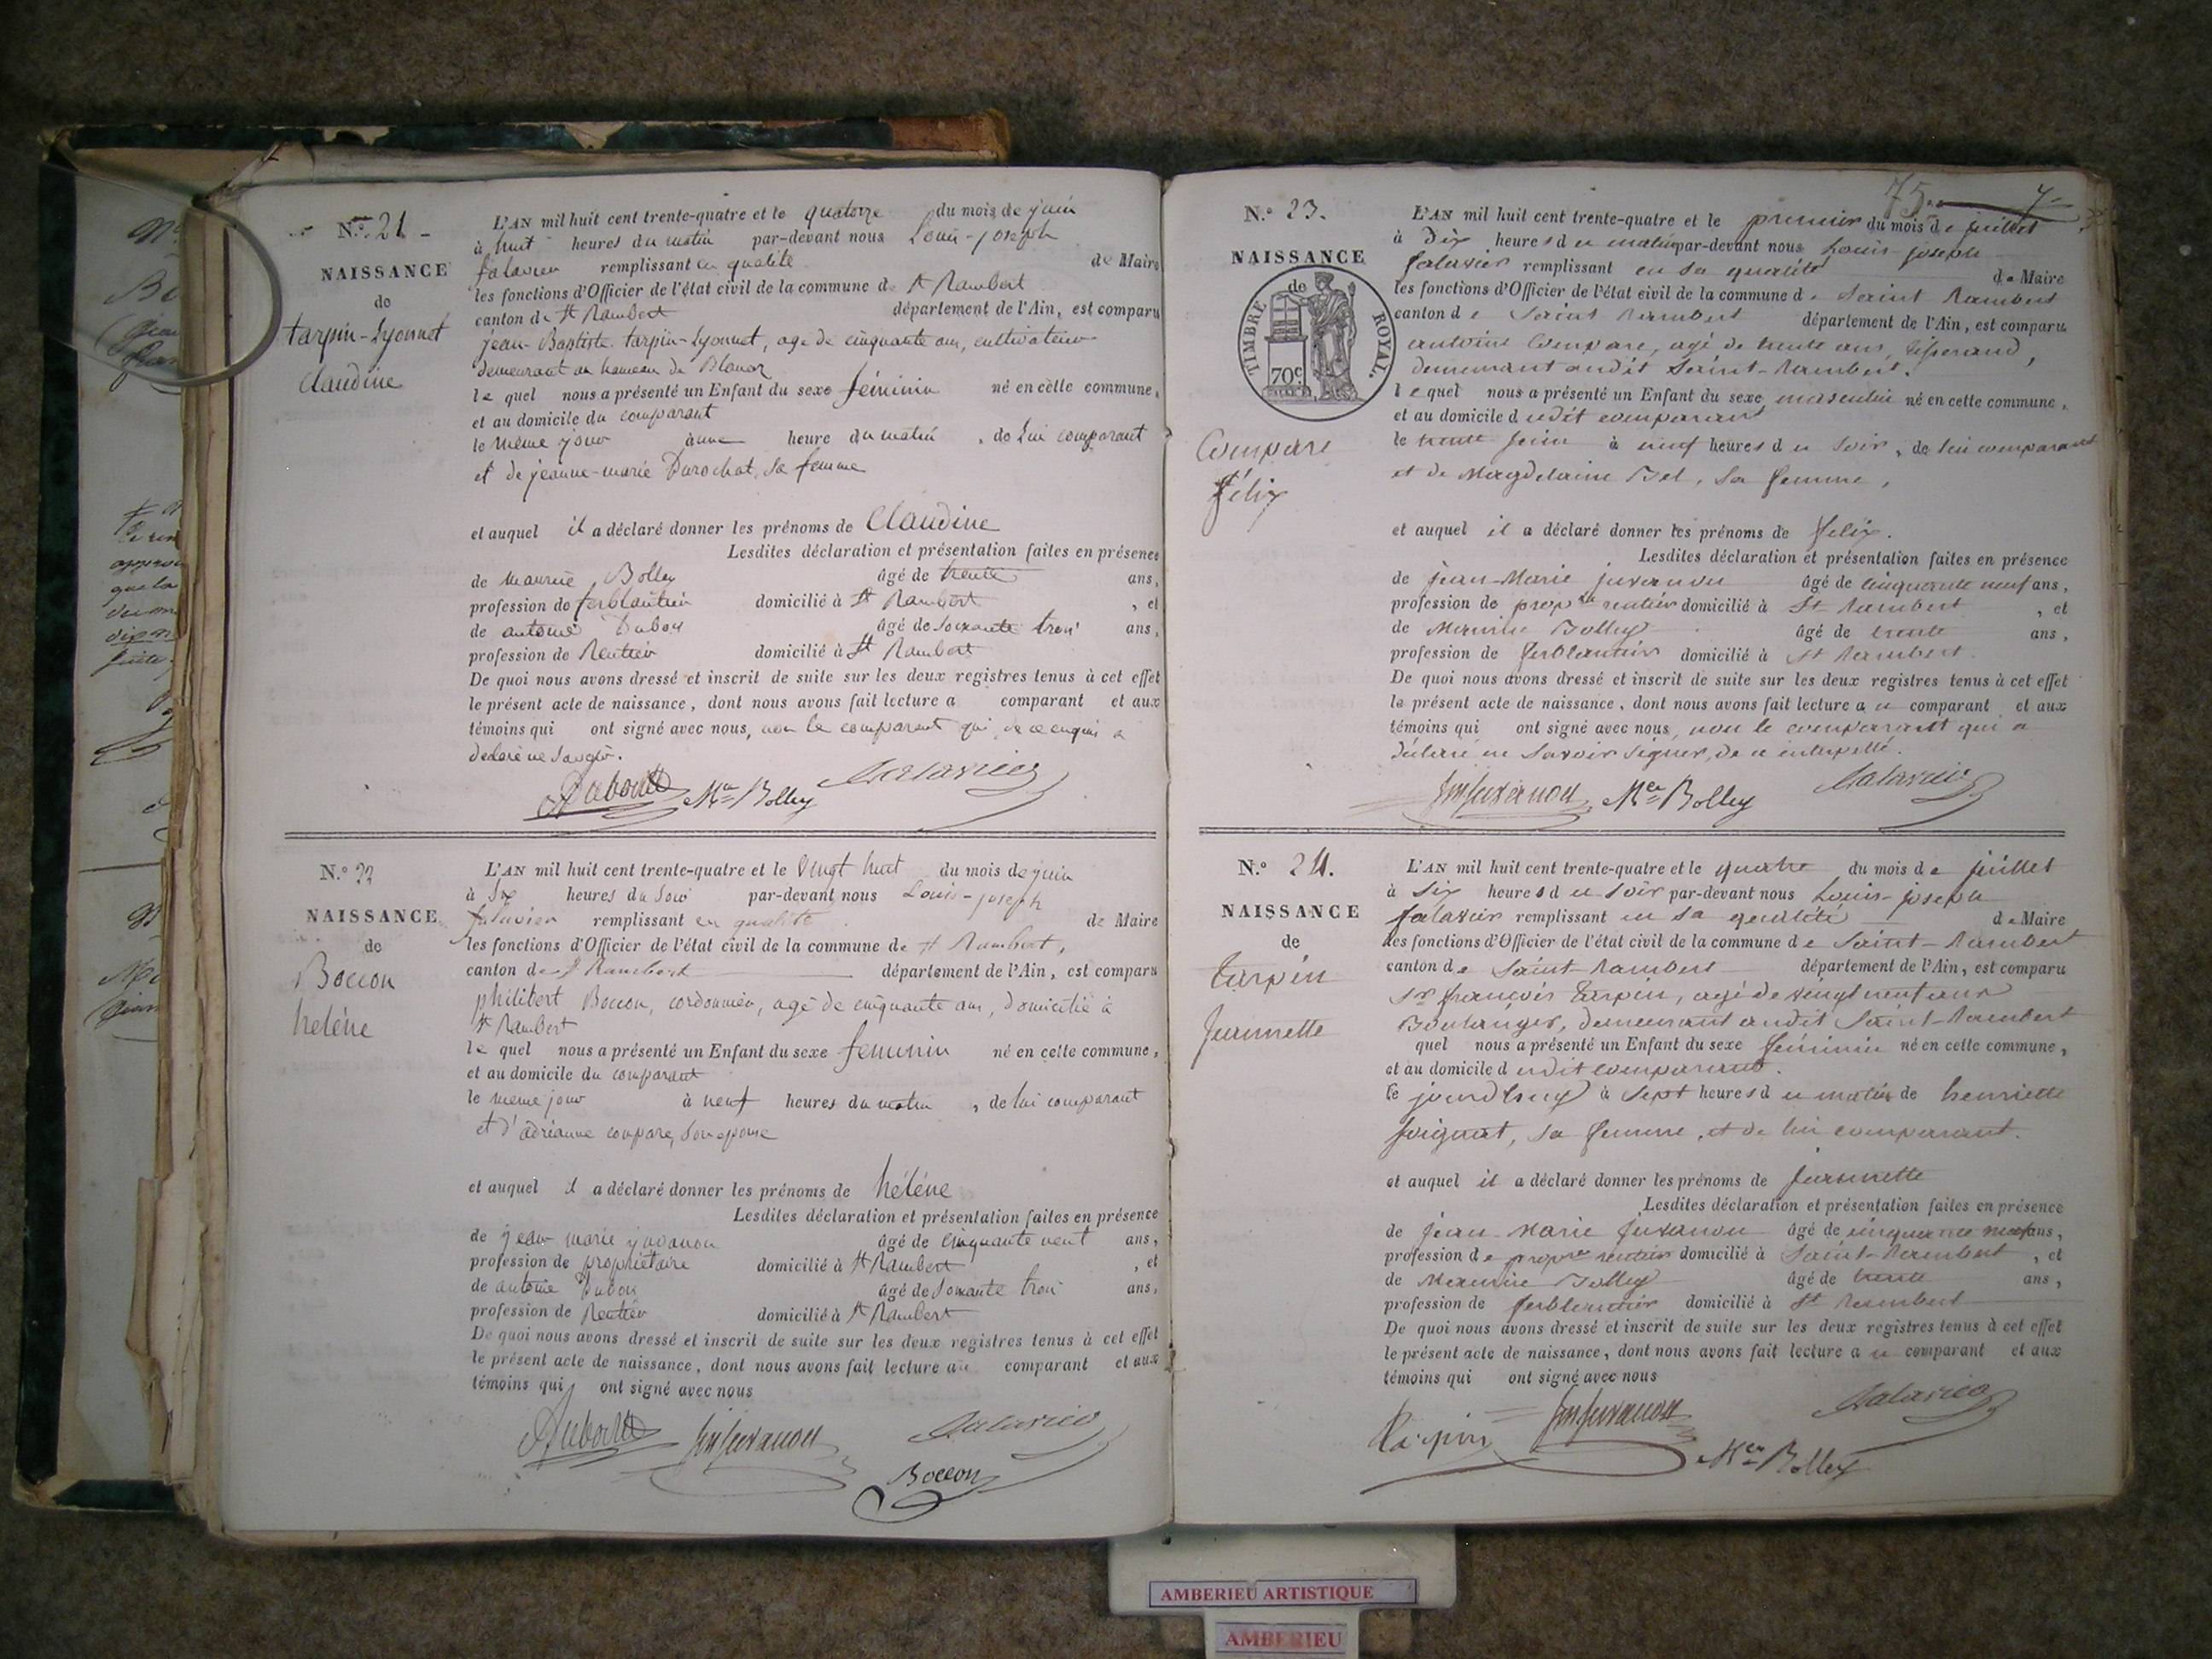 N.° 21
NAISSANCE
de
tarpin-Lyonnet
Claudine
L'AN mil huit cent trente-quatre et le quatorze du mois de juin
à huit heures du matin par-devant nous Louis-joseph
falavier remplissant en qualité de Maire
les fonctions d'Officier de l'état civil de la commune de St Rambert
canton de St Rambert département de l'Ain, est comparu
jean-Baptiste tarpin-Lyonnet, age de cinquante ans, cultivateur
demeurant au hameau de Blanaz
le quel nous a présenté un Enfant du sexe féminin né en cette commune,
et au domicile du comparant
le même jour à une heure du matin, de Lui comparant
et de jeanne-marie Durochat, sa femme
et auquel il a déclaré donner les prénoms de Claudine
Lesdites déclaration et présentation faites en présence
de maurice Bolley âgé de trente ans,
profession de ferblantier domicilié à St Rambert, et
de antoine Dubou âgé de soixante trois ans,
profession de Rentier domicilié à St Rambert
De quoi nous avons dressé et inscrit de suite sur les deux registres tenus à cet effet
le présent acte de naissance, dont nous avons fait lecture a comparant et aux
témoins qui ont signé avec nous, non le comparant qui de ce enquis a
declaré ne
Mce Bolley
N.° 22
NAISSANCE
de
Boccon
heléne
L'AN mil huit cent trente-quatre et le vingt huit du mois de juin
à heures du Soir par-devant nous Louis-joseph
falavier remplissant en qualité de Maire
les fonctions d'Officier de l'état civil de la commune de St Rambert,
canton de St Rambert département de l'Ain, est comparu
philibert Boccon, cordonnier, agé de cinquante ans, domicilié à
St Rambert
le quel nous a présenté un Enfant du sexe feminin né en cette commune,
et au domicile du comparant
le meme jour à neuf heures du matin, de lui comparant
et d'adrianne compare, son epouse
et auquel il a déclaré donner les prénoms de héléne
Lesdites déclaration et présentation faites en présence
de jean marie juvanon âgé de cinquante neuf ans,
profession de propriétaire domicilié à St Rambert, et
de antoine Dubou âgé de Soixante trois ans,
profession de Rentier domicilié à St Rambert
De quoi nous avons dressé et inscrit de suite sur les deux registres tenus à cet effet
le présent acte de naissance, dont nous avons fait lecture au comparant et aux
témoins qui ont signé avec nous
Jm Juvanon
Boccon
75
N.° 23.
NAISSANCE
de
TIMBRE ROYAL.
70c.
Compare
félix
L'AN mil huit cent trente-quatre et le premier du mois de juillet
à Dix heures du matin par-devant nous Louis-joseph
falavier remplissant en sa qualité de Maire
les fonctions d'Officier de l'état civil de la commune de Saint Rambert
canton de Saint Rambert département de l'Ain, est comparu
antoine Compare, agé de trente ans, tisserand,
demeurant audit Saint-Rambert.
le quel nous a présenté un Enfant du sexe masculin né en cette commune,
et au domicile dudit comparant
le trente juin à neuf heures du Soir, de lui comparant
et de Magdelaine Bel, sa femme,
et auquel il a déclaré donner les prénoms de felix.
Lesdites déclaration et présentation faites en présence
de jean-Marie juvanon âgé de cinquante neuf ans,
profession de propre rentier domicilié à St Rambert, et
de Maurice Bolley âgé de trente ans,
profession de ferblantier domicilié à St Rambert.
De quoi nous avons dressé et inscrit de suite sur les deux registres tenus à cet effet
le présent acte de naissance, dont nous avons fait lecture au comparant et aux
témoins qui ont signé avec nous, non le comparant qui a
déclaré ne savoir signer, de ce interpellé.
Jm Juvanon Mce Bolley
N.° 24.
NAISSANCE
de
tarpin
Jeannette
L'AN mil huit cent trente-quatre et le quatre du mois de juillet
à six heures du soir par-devant nous Louis-joseph
falavier remplissant en sa qualité de Maire
les fonctions d'Officier de l'état civil de la commune de Saint-Rambert
canton de Saint-Rambert département de l'Ain, est comparu
Sr françois tarpin, agé de vingt neuf ans
Boulanger, demeurant audit Saint-Rambert
quel nous a présenté un Enfant du sexe féminin né en cette commune,
et au domicile dudit comparant.
le jourd'huy à sept heures du matin de henriette
joignat, sa femme, et de lui comparant.
et auquel il a déclaré donner les prénoms de Jeannette
Lesdites déclaration et présentation faites en présence
de Jean-Marie Juvanon âgé de cinquante neuf ans,
profession de propre rentier domicilié à Saint-Rambert, et
de Maurice Bolley âgé de trente ans,
profession de ferblantier domicilié à St Rambert
De quoi nous avons dressé et inscrit de suite sur les deux registres tenus à cet effet
le présent acte de naissance, dont nous avons fait lecture au comparant et aux
témoins qui ont signé avec nous
Tarpin Jm Juvanon
Mce Bolley
AMBERIEU ARTISTIQUE
AMBERIEU